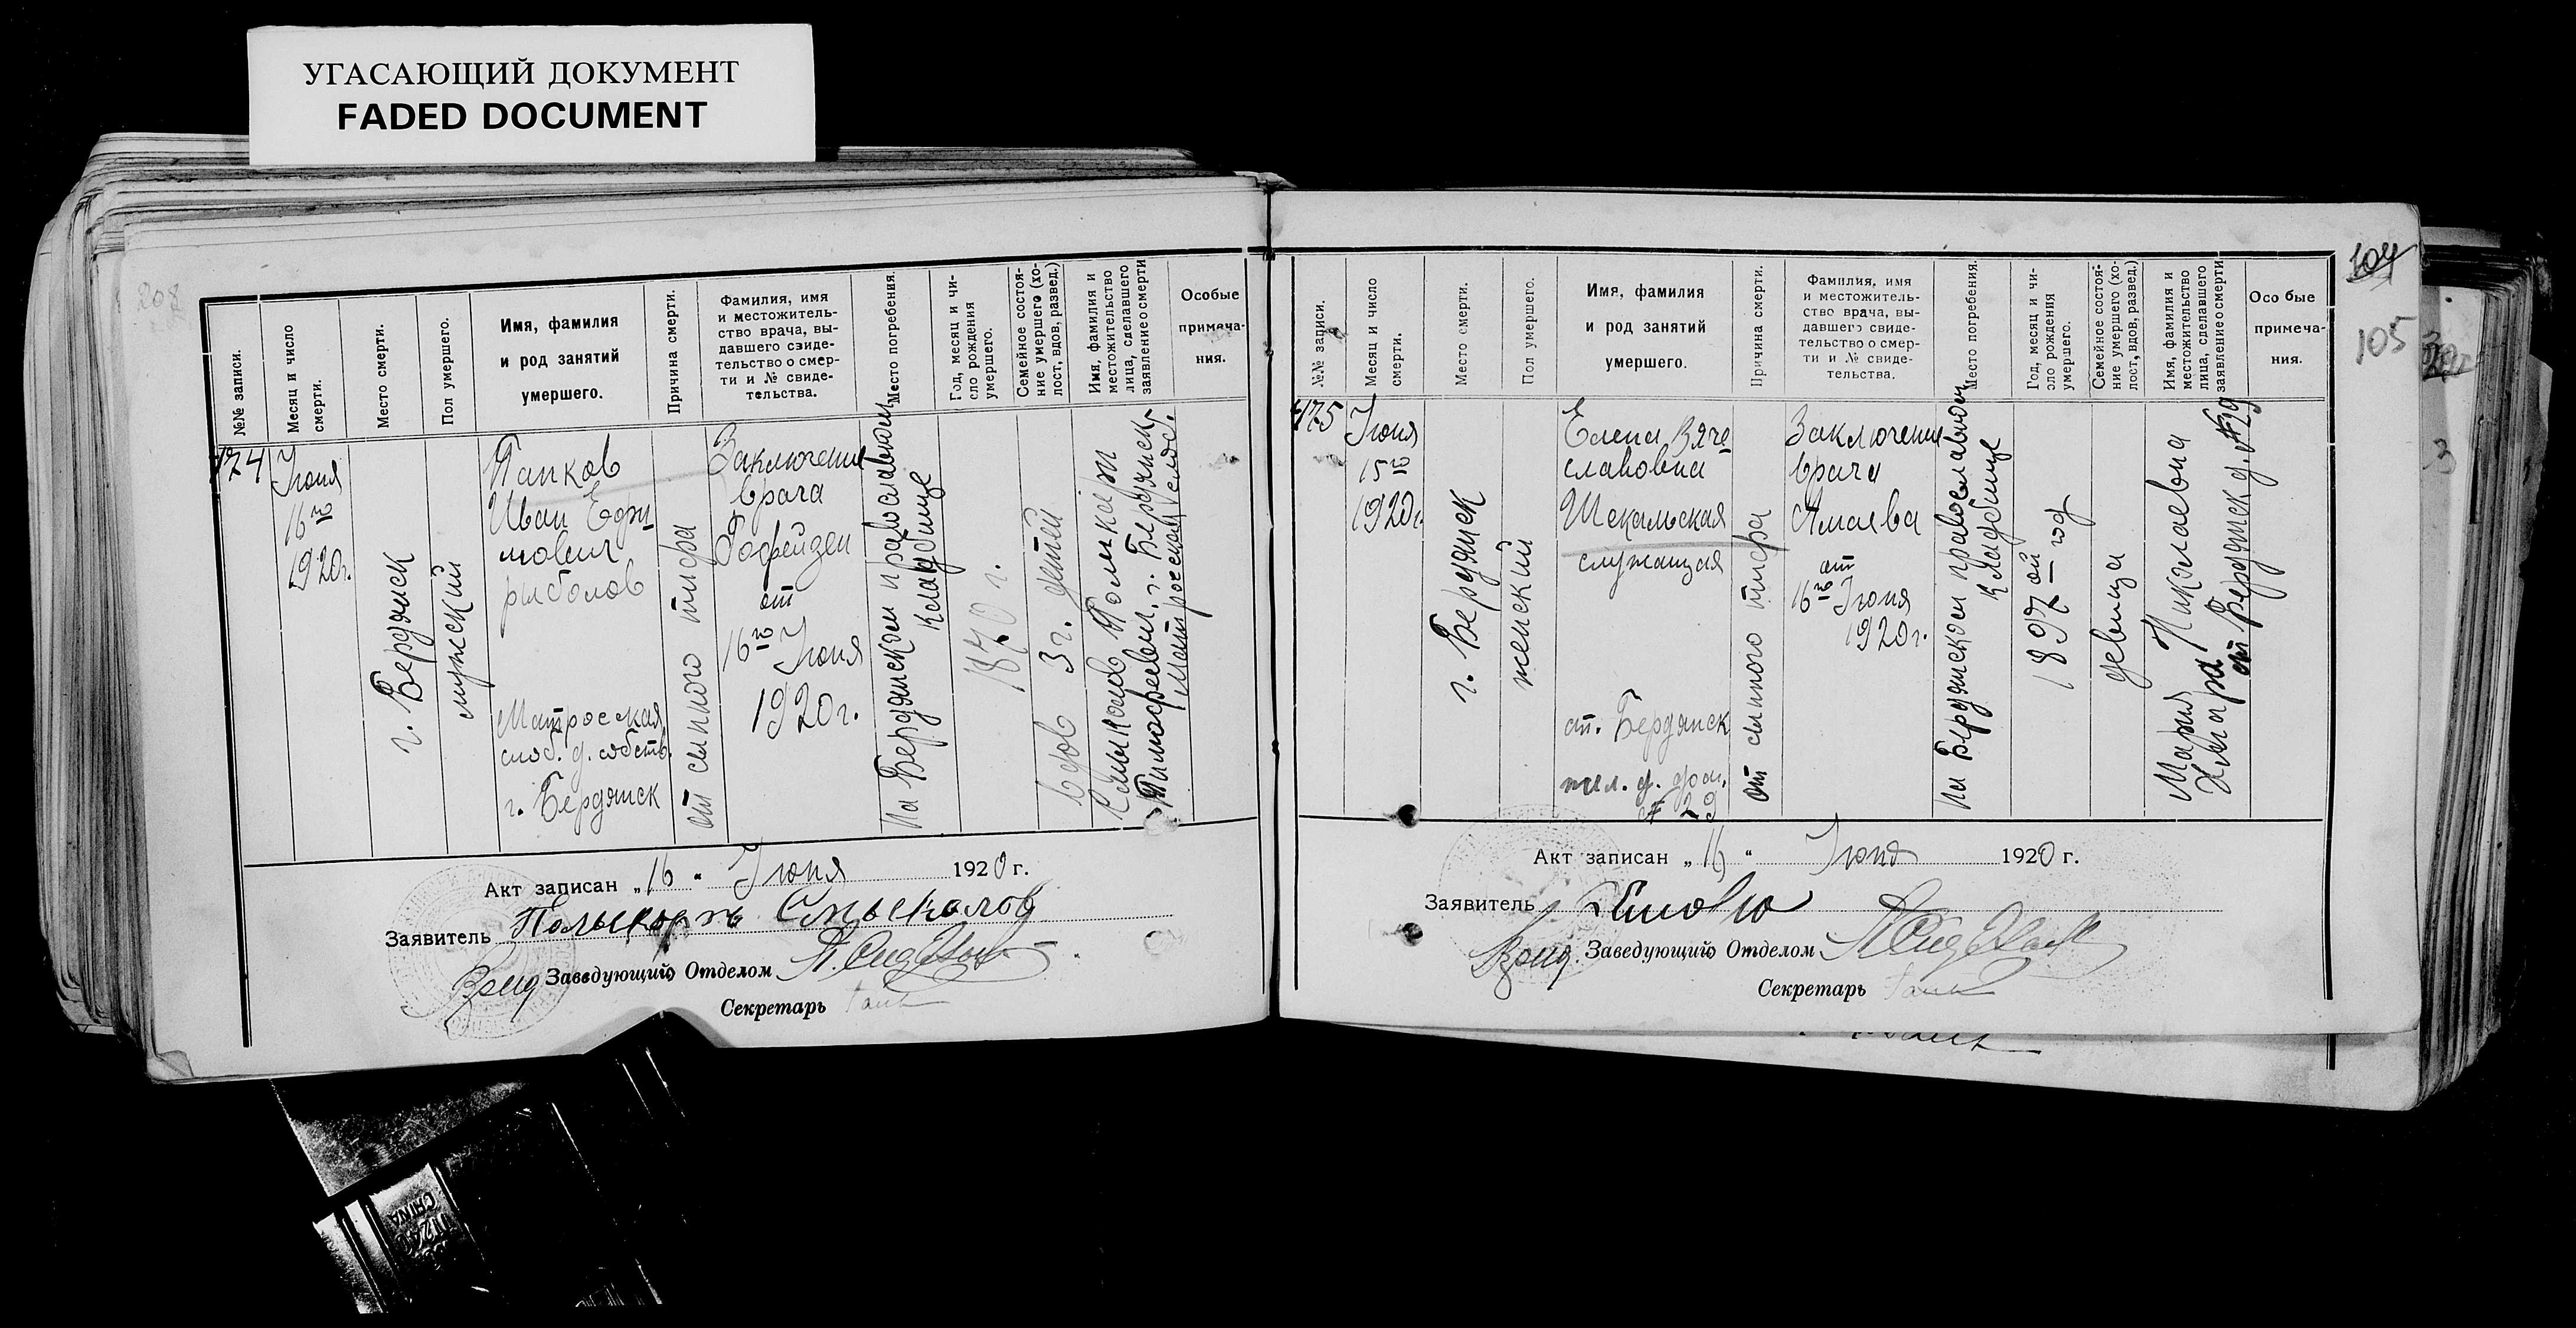 УГАСАЮЩИЙ ДОКУМЕНТ
FADED DOCUMENT
208
№№ записи.
Месяц и число
смерти.
Место смерти.
Пол умершего.
Имя, фамилия
и род занятий
умершего.
Причина смерти.
Фамилия, имя
и местожитель-
ство врача, вы-
давшего свиде-
тельство о смер-
ти и № свиде-
тельства.
Место погребения.
Год, месяц и чи-
сло рождения
умершего.
Семейное состоя-
ние умершего (хо-
лост, вдов, развед.)
Имя, фамилия и
местожительство
лица, сделавшего
заявление о смерти
Особые
примеча-
ния.
174
Июня
16го
1920г.
г. Бердянск
мужской
Папков
Иван Ефи-
мович
рыболов
Матросская
слоб. д. собств.
г. Бердянск
от сыпного тифа
Заключение
врача
от
16го Июня
1920г.
На Бердянском православном
кладбище
1870 г.
вдов 3г. детей
Поликарп
Тимофеевич, г. Бердянск,
Акт записан „16" Июня 1920 г.
Заявитель
Врид Заведующий Отделом
Секретарь
104
105
№№ записи.
Месяц и число
смерти.
Место смерти.
Пол умершего.
Имя, фамилия
и род занятий
умершего.
Причина смерти.
Фамилия, имя
и местожитель-
ство врача, вы-
давшего свиде-
тельство о смер-
ти и № свиде-
тельства.
Место погребения.
Год, месяц и чи-
сло рождения
умершего.
Семейное состоя-
ние умершего (хо-
лост, вдов, развед.)
Имя, фамилия и
местожительство
лица, сделавшего
заявление о смерти
Особые
примеча-
ния.
175
Июня
15го
1920г.
г. Бердянск
женский
Елена Вяче-
славовна
Шекальская
служащая
ст. Бердянск
№ 29
от сыпного тифа
Заключение
врача
Амаева
от
16го Июня
1920г.
На Бердянском православном
кладбище
1897ой год
девица
Мария Николаевна
Хмара ст Бердянск д. №29
Акт записан „16" Июня 1920 г.
Заявитель
Врид. Заведующий Отделом
Секретарь